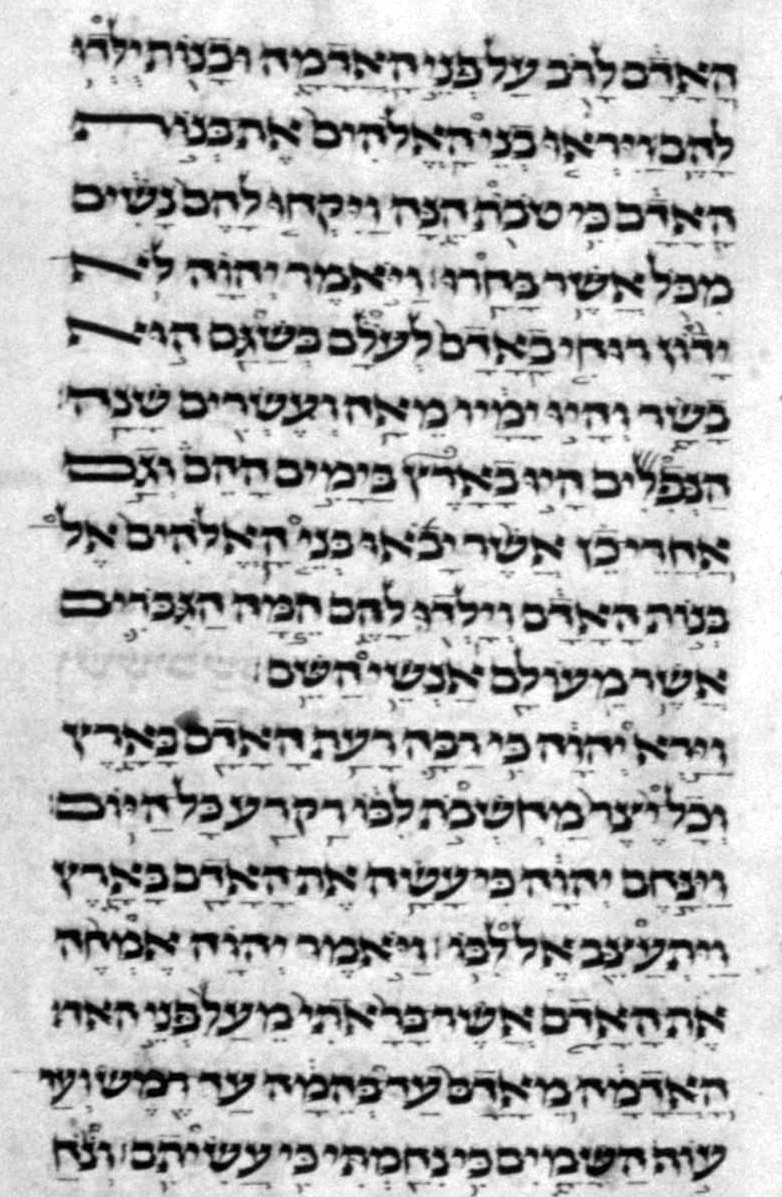 הָאָדָם לָרֹב עַל פְּנֵי הָאֲדָמָה וּבָנוֹת יֻלְּדוּ
לָהֶם׃ וַיִּרְאוּ בְנֵי הָאֱלֹהִים אֶת בְּנוֹת
הָאָדָם כִּי טֹבֹת הֵנָּה וַיִּקְחוּ לָהֶם נָשִׁים
מִכֹּל אֲשֶׁר בָּחָרוּ׃ וַיֹּאמֶר יְהוָה לֹא
יָדוֹן רוּחִי בָאָדָם לְעֹלָם בְּשַׁגָּם הוּא
בָשָׂר וְהָיוּ יָמָיו מֵאָה וְעֶשְׂרִים שָׁנָה׃
הַנְּפִלִים הָיוּ בָאָרֶץ בַּיָּמִים הָהֵם וְגַם
אַחֲרֵי כֵן אֲשֶׁר יָבֹאוּ בְּנֵי הָאֱלֹהִים אֶל
בְּנוֹת הָאָדָם וְיָלְדוּ לָהֶם הֵמָּה הַגִּבֹּרִים
אֲשֶׁר מֵעוֹלָם אַנְשֵׁי הַשֵּׁם׃
וַיַּרְא יְהוָה כִּי רַבָּה רָעַת הָאָדָם בָּאָרֶץ
וְכָל יֵצֶר מַחְשְׁבֹת לִבּוֹ רַק רַע כָּל הַיּוֹם׃
וַיִּנָּחֶם יְהוָה כִּי עָשָׂה אֶת הָאָדָם בָּאָרֶץ
וַיִּתְעַצֵּב אֶל לִבּוֹ׃ וַיֹּאמֶר יְהוָה אֶמְחֶה
אֶת הָאָדָם אֲשֶׁר בָּרָאתִי מֵעַל פְּנֵי
הָאֲדָמָה מֵאָדָם עַד בְּהֵמָה עַד רֶמֶשׂ וְעַד
עוֹף הַשָּׁמָיִם כִּי נִחַמְתִּי כִּי עֲשִׂיתִם׃ וְנֹחַ